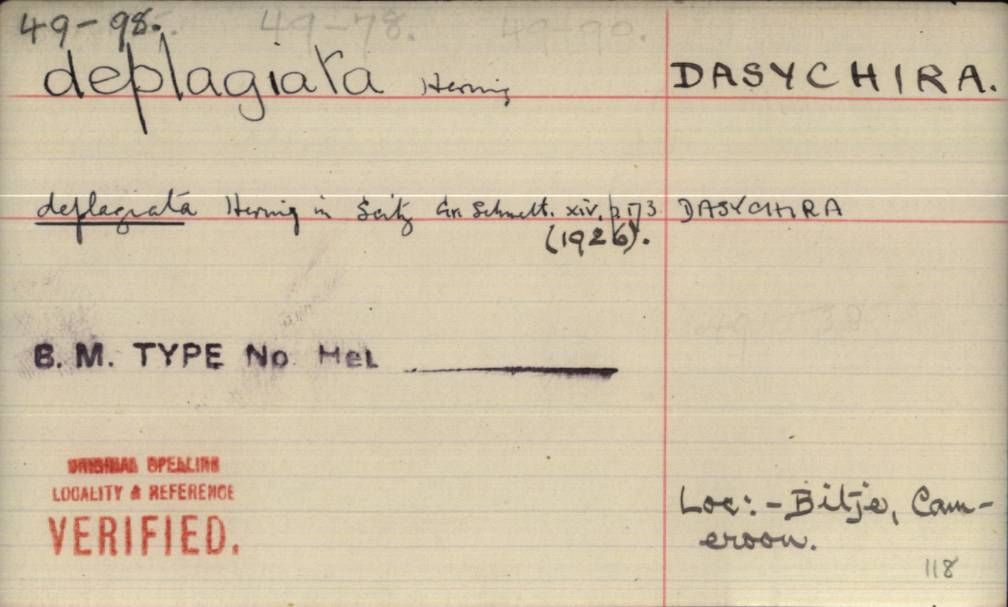 49-98. 49-78. 49-90.
deplagiata Hering DASYCHIRA.
deplagiata Hering in Seitz Gr. Schmett. xiv, p 173 DASYCHIRA
(1926).
B. M. TYPE No HeL
ORIGINAL SPELLING
LOCALITY & REFERENCE
VERIFIED.
Loc:- Bitje, Cam-
eroon.
118